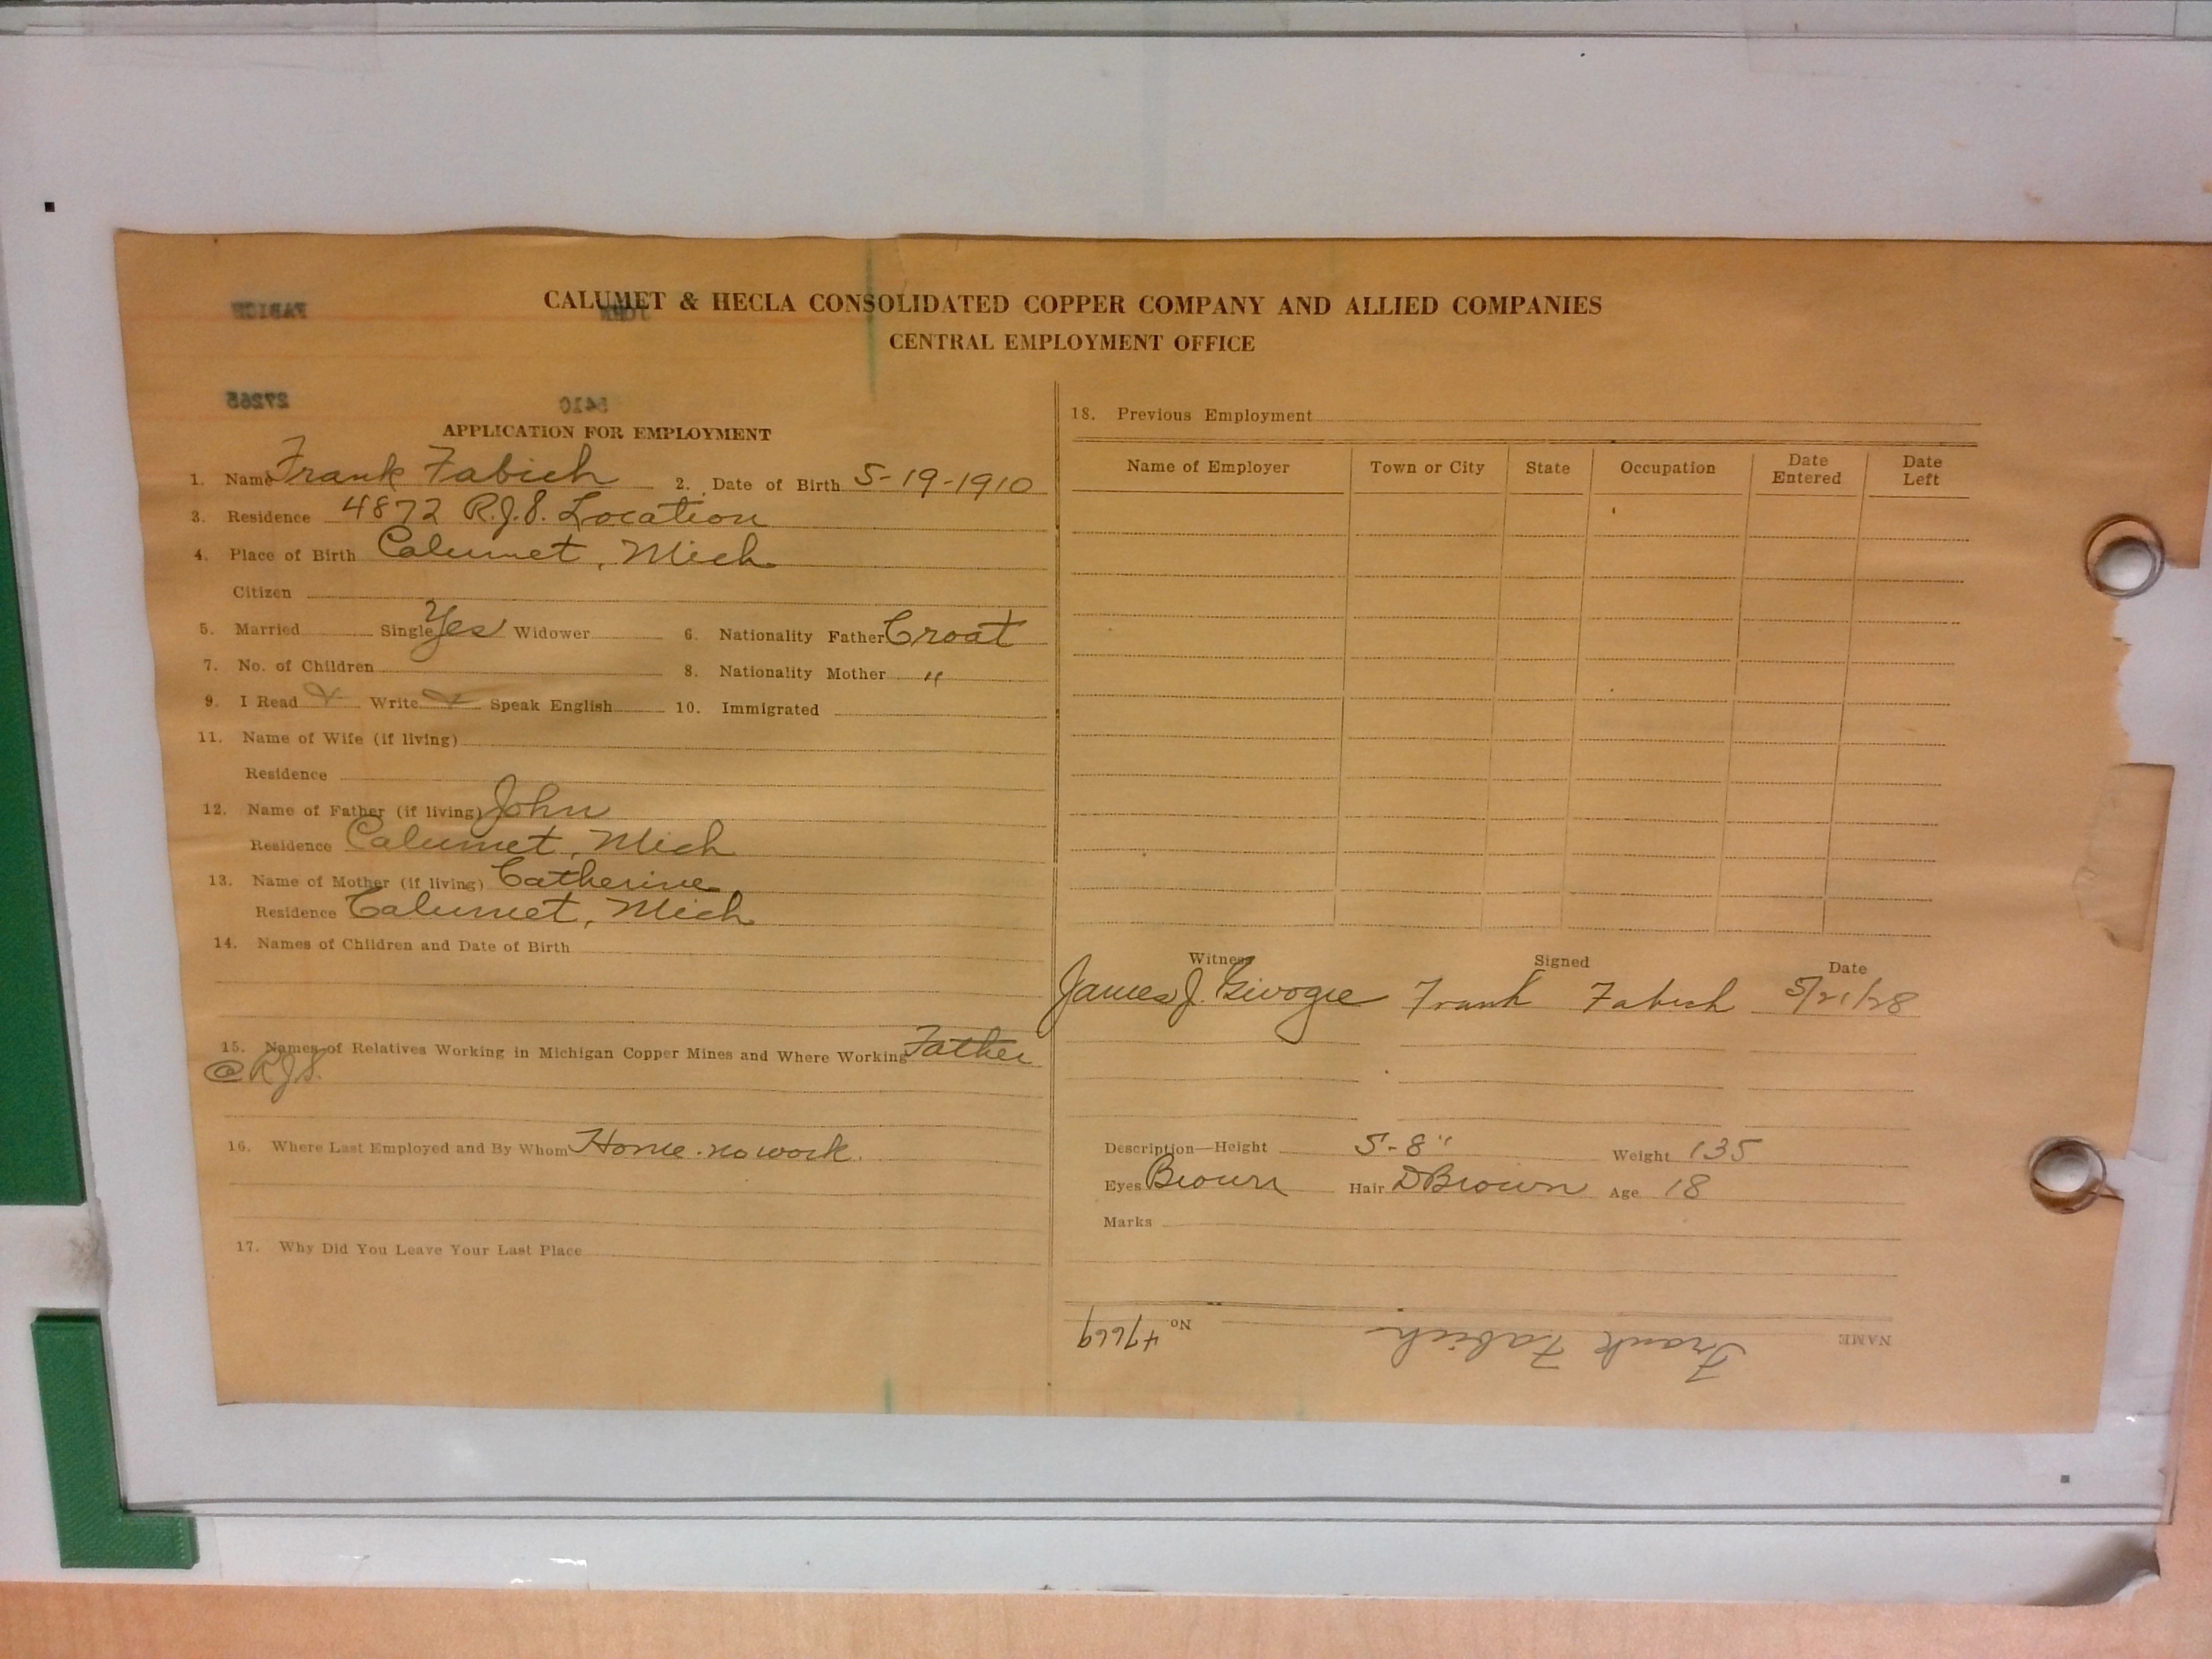 FABICH JOHN
CALUMET & HECLA CONSOLIDATED COPPER COMPANY AND ALLIED COMPANIES
CENTRAL EMPLOYMENT OFFICE
27265 5410
APPLICATION FOR EMPLOYMENT
1. Name Frank Fabich 2. Date of Birth 5-19-1910
3. Residence 4872 R.J.S. Location
4. Place of Birth Calumet, Mich
Citizen
5. Married Single Yes Widower 6. Nationality Father Croat
7. No. of Children 8. Nationality Mother "
9. I Read X Write X Speak English 10. Immigrated
11. Name of Wife (if living)
Residence
12. Name of Father (if living) John
Residence Calumet, Mich
13. Name of Mother (if living) Catherine
Residence Calumet, Mich
14. Names of Children and Date of Birth
15. Names of Relatives Working in Michigan Copper Mines and Where Working Father
@ RJS.
16. Where Last Employed and By Whom Home - no work.
17. Why Did You Leave Your Last Place
18. Previous Employment
Name of Employer Town or City State Occupation Date Entered Date Left
Witness Signed Date
James J. Frank Fabich 5/21/28
Description—Height 5-8" Weight 135
Eyes Brown Hair D Brown Age 18
Marks
NAME Frank Fabich No. 47669